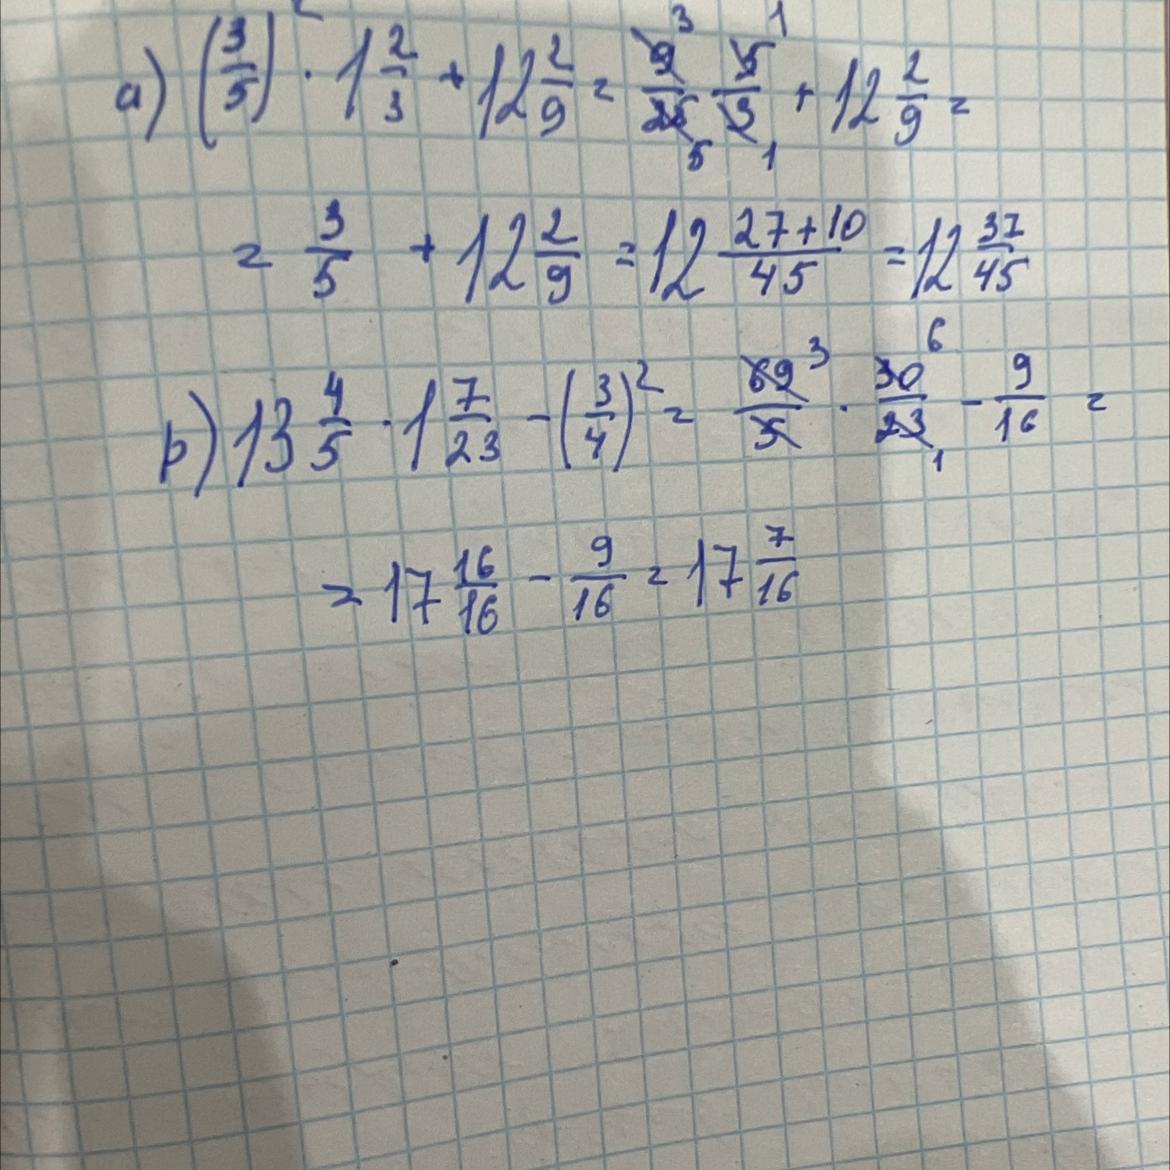 а) (3/5)² · 1 2/3 + 12 2/9 = 9/25 · 5/3 + 12 2/9 =
= 3/5 + 12 2/9 = 12 (27+10)/45 = 12 37/45
в) 13 4/5 · 1 7/23 - (3/4)² = 69/5 · 30/23 - 9/16 =
= 17 16/16 - 9/16 = 17 7/16